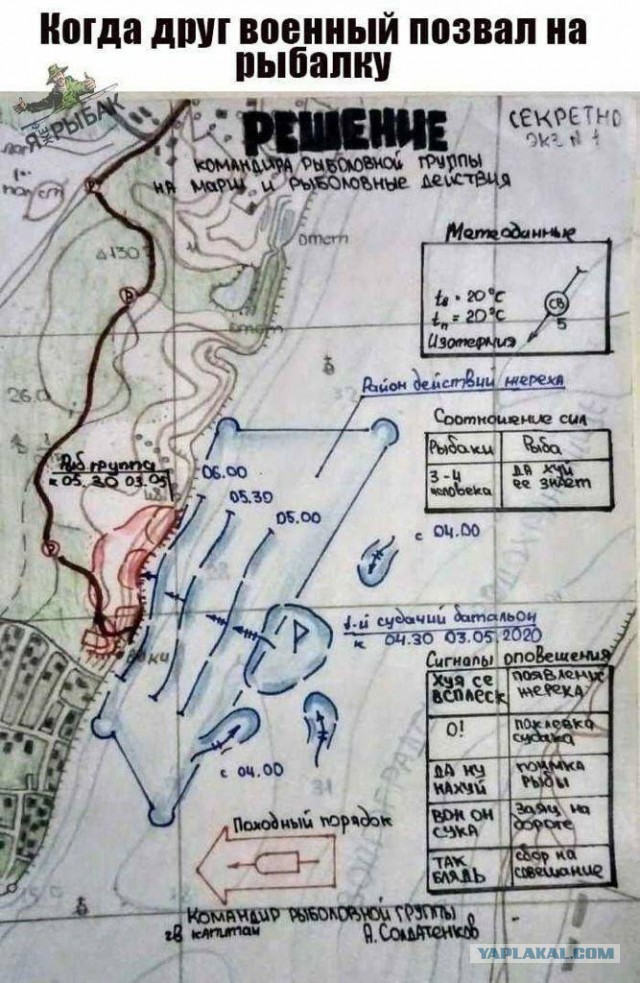 Когда друг военный позвал на
рыбалку
Я РЫБАК
РЕШЕНИЕ
СЕКРЕТНО
ЭКЗ N 1
КОМАНДИРА РЫБОЛОВНОЙ ГРУППЫ
НА МАРШ И РЫБОЛОВНЫЕ ДЕЙСТВИЯ
отст
Метеоданные
130
tв = 20°C
tп = 20°C
Изотермия
СВ
5
отст
Район действий жереха
26.0
Соотношение сил
Рыбаки Рыба
3-4
человека
ДА ХУЙ
ЕЕ ЗНАЕТ
Рыб группа
к 05.30 03.05
06.00
05.30
05.00
с 04.00
Р
1-й судачий батальон
к 04.30 03.05.2020
Сигналы оповещения
ХУЯ СЕ
ВСПЛЕСК
ПОЯВЛЕНИЕ
ЖЕРЕХА
О!
ПОКЛЕВКА
СУДАКА
ДА НУ
НАХУЙ
ПОИМКА
РЫБЫ
ВОН ОН
СУКА
ЗАЯЦ НА
ДОРОГЕ
ТАК
БЛЯДЬ
СБОР НА
СОВЕЩАНИЕ
с 04.00
31
Походный порядок
КОМАНДИР РЫБОЛОВНОЙ ГРУППЫ
гв КАПИТАН А.СОЛДАТЕНКОВ
YAPLAKAL.COM